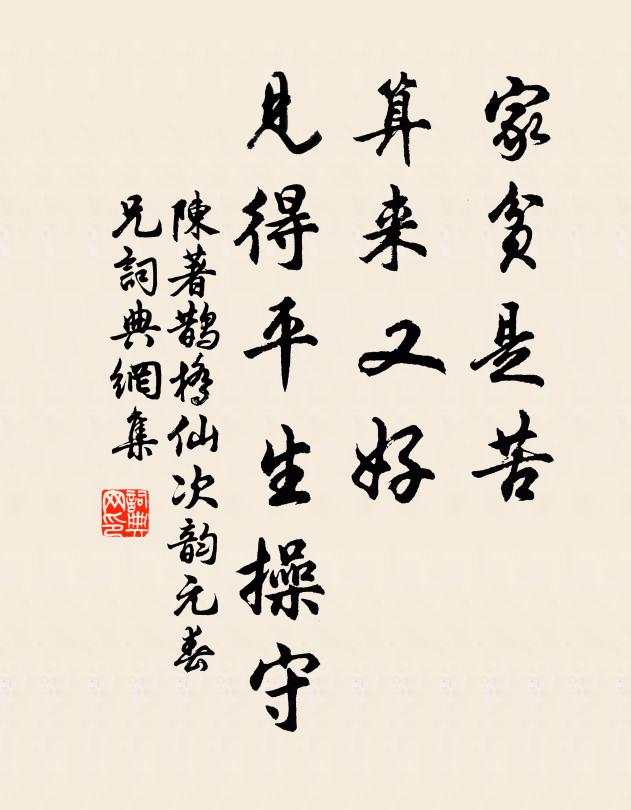 家貧是苦
算来又好
見得平生操守
陳著鵲橋仙次韵元春
兄詞典網集
詞典
网印